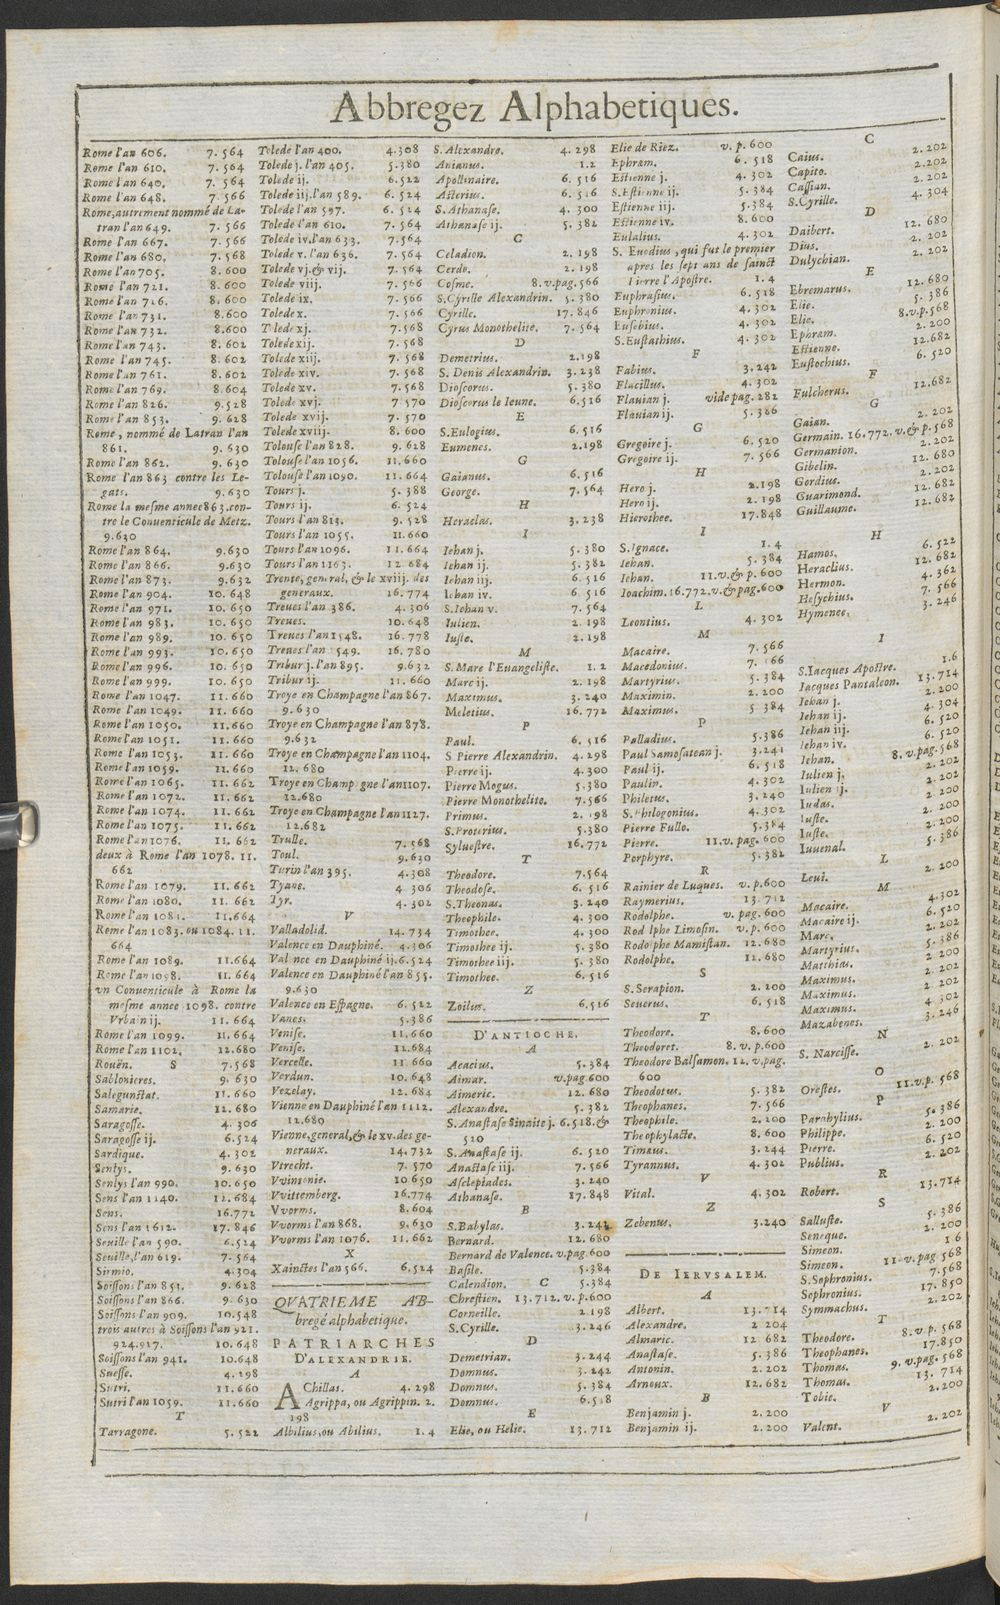 Abbregez Alphabetiques.
Rome l'an 606. 7. 564
Rome l'an 610. 7. 564
Rome l'an 640. 7. 564
Rome l'an 648. 7. 566
Rome, autrement nommé de La-
tran l'an 649. 7. 566
Rome l'an 667. 7. 566
Rome l'an 680. 7. 568
Rome l'an 705. 8. 600
Rome l'an 721. 8. 600
Rome l'an 726. 8. 600
Rome l'an 731. 8. 600
Rome l'an 732. 8. 600
Rome l'an 743. 8. 602
Rome l'an 745. 8. 602
Rome l'an 761. 8. 602
Rome l'an 769. 8. 604
Rome l'an 826. 9. 528
Rome l'an 853. 9. 628
Rome, nommé de Latran l'an
861. 9. 630
Rome l'an 862. 9. 630
Rome l'an 863 contre les Le-
gats. 9. 630
Rome la mesme annee 863. con-
tre le Conuenticule de Metz.
9. 630
Rome l'an 864. 9. 630
Rome l'an 866. 9. 630
Rome l'an 873. 9. 632
Rome l'an 904. 10. 648
Rome l'an 971. 10. 650
Rome l'an 983. 10. 650
Rome l'an 989. 10. 650
Rome l'an 993. 10. 650
Rome l'an 996. 10. 650
Rome l'an 999. 10. 650
Rome l'an 1047. 11. 660
Rome l'an 1049. 11. 660
Rome l'an 1050. 11. 660
Rome l'an 1051. 11. 660
Rome l'an 1053. 11. 660
Rome l'an 1059. 11. 660
Rome l'an 1065. 11. 662
Rome l'an 1072. 11. 662
Rome l'an 1074. 11. 662
Rome l'an 1075. 11. 662
Rome l'an 1076. 11. 662
deux à Rome l'an 1078. 11.
662
Rome l'an 1079. 11. 662
Rome l'an 1080. 11. 662
Rome l'an 1081. 11. 664
Rome l'an 1083. ou 1084. 11.
664
Rome l'an 1089. 11. 664
Rome l'an 1098. 11. 664
vn Conuenticule à Rome la
mesme annee 1098. contre
Vrbain ij. 11. 664
Rome l'an 1099. 11. 664
Rome l'an 1102. 12. 680
Rouën. S 7. 568
Sablonieres. 9. 630
Salegunstat. 11. 660
Samarie. 12. 680
Saragosse. 4. 306
Saragosse ij. 6. 524
Sardique. 4. 302
Senlys. 9. 630
Senlys l'an 990. 10. 650
Sens l'an 1140. 12. 684
Sens. 16. 772
Sens l'an 1612. 17. 846
Seuille l'an 590. 6. 524
Seuille, l'an 619. 7. 564
Sirmio. 4. 304
Soissons l'an 851. 9. 628
Soissons l'an 866. 9. 630
Soissons l'an 909. 10. 548
trois autres à Soissons l'an 921.
924. 917. 10. 648
Soissons l'an 941. 10. 648
Suesse. 4. 298
Sutri. 11. 660
Sutri l'an 1059. 11. 660
T
Tarragone. 5. 522
Tolede l'an 400. 4. 308
Tolede j. l'an 405. 5. 380
Tolede ij. 6. 522
Tolede iij. l'an 589. 6. 524
Tolede l'an 597. 6. 524
Tolede l'an 610. 7. 564
Tolede iv. l'an 633. 7. 564
Tolede v. l'an 636. 7. 564
Tolede vj. & vij. 7. 564
Tolede viij. 7. 566
Tolede ix. 7. 566
Tolede x. 7. 566
Tolede xj. 7. 568
Tolede xij. 7. 568
Tolede xiij. 7. 568
Tolede xiv. 7. 568
Tolede xv. 7. 568
Tolede xvj. 7 570
Tolede xvij. 7. 570
Tolede xviij. 8. 600
Tolouse l'an 828. 9. 628
Tolouse l'an 1056. 11. 660
Tolouse l'an 1090. 11. 664
Tours j. 5. 388
Tours ij. 6. 524
Tours l'an 813. 9. 528
Tours l'an 1055. 11. 660
Tours l'an 1096. 11. 664
Tours l'an 1163. 12. 684
Trente, general, & le xviij. des
generaux. 16. 774
Treues l'an 386. 4. 306
Treues. 10. 648
Treues l'an 1548. 16. 778
Treues l'an 1549. 16. 780
Tribur j. l'an 895. 9. 632
Tribur ij. 11. 660
Troye en Champagne l'an 867.
9. 630
Troye en Champagne l'an 878.
9. 632
Troye en Champagne l'an 1104.
12. 680
Troye en Champagne l'an 1107.
12. 680
Troye en Champagne l'an 1127.
12. 682
Trulle. 7. 568
Toul. 9. 630
Turin l'an 395. 4. 308
Tyane. 4. 306
Tyr. 4. 302
V
Valladolid. 14. 734
Valence en Dauphiné. 4. 306
Valence en Dauphiné ij. 6. 524
Valence en Dauphiné l'an 855.
9. 630
Valence en Espagne. 6. 522
Vanes. 5. 386
Venise. 11. 660
Venise. 12. 684
Vercelle. 11. 660
Verdun. 10. 648
Vezelay. 12. 684
Vienne en Dauphiné l'an 1112.
12. 680
Vienne, general, & le xv. des ge-
neraux. 14. 732
Vtrecht. 7. 570
Vvinsonie. 10 650
Vvittemberg. 16. 774
Vvorms. 8. 604
Vvorms l'an 868. 9. 630
Vvorms l'an 1076. 11. 662
X
Xainctes l'an 566. 6. 524
QVATRIEME AB-
bregé alphabetique.
PATRIARCHES
D'ALEXANDRIE.
A
AChillas. 4. 298
Agrippa, ou Agrippin. 2.
198
Albilius, ou Abilius. 1. 4
S. Alexandre. 4. 298
Anianus. 1. 2
Apollinaire. 6. 516
Asterius. 6. 516
S. Athanase. 4. 300
Athanase ij. 5. 382
C
Celadion. 2. 198
Cerdo. 2. 198
Cosme. 8. v. pag. 566
S. Cyrille Alexandrin. 5. 380
Cyrille. 17. 846
Cyrus Monothelite. 7. 564
D
Demetrius. 2. 198
S. Denis Alexandrin. 3. 238
Dioscorus. 5. 380
Dioscorus le Ieune. 6. 516
E
S. Eulogius. 6. 516
Eumenes. 2. 198
G
Gaianus. 6. 516
George. 7. 564
H
Heraclas. 3. 238
I
Iehan j. 5. 380
Iehan ij. 5. 382
Iehan iij. 6. 516
Iehan iv. 6. 516
S. Iehan v. 7. 564
Iulien. 2. 198
Iuste. 2. 198
M
S. Marc l'Euangeliste. 1. 2
Marc ij. 2. 198
Maximus. 3. 240
Meletius. 16. 772
P
Paul. 6. 516
S Pierre Alexandrin. 4. 298
Pierre ij. 4. 300
Pierre Mogus. 5. 380
Pierre Monothelite. 7. 566
Primus. 2. 198
S. Proterius. 5. 380
Sylvestre. 16. 772
T
Theodore. 7. 564
Theodose. 6. 516
S. Theonas. 3. 240
Theophile. 4. 300
Timothee. 4. 300
Timothee ij. 5. 380
Timothee iij. 5. 380
Timothee. 6. 516
Z
Zoilus. 6. 516
D'ANTIOCHE.
A
Acacius. 5. 384
Aimar. v. pag. 600
Aimeric. 12. 680
Alexandre. 5. 382
S. Anastase Sinaite j. 6. 518. &
520
S. Anastase ij. 6. 520
Anastase iij. 7. 566
Asclepiades. 3. 240
Athanase. 17. 848
B
S. Babylas. 3. 242
Bernard. 12. 680
Bernard de Valence. v. pag 600
Basile. 5. 384
Calendion. C 5. 384
Chrestien. 13. 712. v. p. 600
Corneille. 2. 198
S. Cyrille. 3. 246
D
Demetrian. 3. 244
Domnus. 3. 242
Domnus. 5. 384
Domnus. 6. 518
E
Elie, ou Helie. 13. 712
Elie de Riez. v. p. 600
Ephrem. 6. 518
Estienne j. 4. 302
S. Estienne ij. 5. 384
Estienne iij. 5. 384
Estienne iv. 8. 600
Eulalius. 4. 302
S. Euodius, qui fut le premier
apres les sept ans de sainct
Pierre l'Apostre. 1. 4
Euphrasius. 6. 518
Euphronius. 4. 302
Eusebius. 4. 302
S. Eustathius. 4. 302
F
Fabius. 3. 242
Flacillus. 4. 302
Flauian j. vide pag. 282
Flauian ij. 5. 386
G
Gregoire j. 6. 520
Gregoire ij. 7. 566
H
Hero j. 2. 198
Hero ij. 2. 198
Hierothee. 17. 848
I
S. Ignace. 1. 4
Iehan. 5. 384
Iehan. 11. v. & p. 600
Ioachim. 16. 772. v. & pag. 600
L
Leontius. 4. 302
M
Macaire. 7. 566
Macedonius. 7. 566
Martyrius. 5. 384
Maximin. 2. 200
Maximus. 5 384
P
Palladius. 5. 386
Paul Samosatean j. 3. 241
Paul ij. 6. 518
Paulin. 4. 302
Philetus. 3. 240
S. Philogonius. 4. 302
Pierre Fullo. 5. 384
Pierre. 11. v. pag. 600
Porphyre. 5. 382
R
Rainier de Luques. v. p. 600
Raymerius. 13. 712
Rodolphe. v. pag. 600
Rodolphe Limosin. v. p. 600
Rodolphe Mamistan. 12. 680
Rodolphe. 12. 680
S
S. Serapion. 2. 200
Seuerus. 6. 518
T
Theodore. 8. 600
Theodoret. 8. v. p. 600
Theodore Balsamon. 12. v. pag.
600
Theodotus. 5. 382
Theophanes. 7. 566
Theophile. 2. 200
Theophylacte. 8. 600
Timæus. 3. 244
Tyrannus. 4. 302
V
Vital. 4. 302
Z
Zebennus. 3. 240
DE IERVSALEM.
A
Albert. 13. 714
Alexandre. 2 204
Almaric. 12 682
Anastase. 5. 386
Antonin. 2. 202
Arnoux. 12. 682
B
Benjamin j. 2. 200
Benjamin ij. 2. 200
C
Caius. 2. 202
Capito. 2. 202
Cassian. 2. 202
S. Cyrille. 4. 304
D
Daibert. 12. 680
Dius. 2. 202
Dulychian. 2. 202
E
Ebremarus. 12. 680
Elie. 5. 386
Elie. 8. v. p. 568
Ephram. 2. 200
Estienne. 12. 682
Eustochius. 6. 520
F
Fulcherus. 12. 682
G
Gaian. 2. 202
Germain. 16. 772. v. & p. 568
Germanion. 2. 202
Gibelin. 12. 680
Gordius. 2. 202
Guarimond. 12. 682
Guillaume. 12. 682
H
Hamos. 6. 522
Heraclius. 12. 682
Hermon. 4. 362
Hesychius. 7. 566
Hymenee. 3. 246
I
S. Iacques Apostre. 1. 6
Iacques Pantaleon. 13. 714
Iehan j. 2. 200
Iehan ij. 4. 304
Iehan iij. 6. 520
Iehan iv. 6. 520
Iehan. 8. v. pag. 568
Iulien j. 2. 202
Iulien ij. 2. 202
Iudas. 2. 200
Iuste. 2. 200
Iuste. 2. 200
Iuuenal. 5. 386
L
Leui. 2. 200
M
Macaire. 4. 302
Macaire ij. 6. 520
Marc. 2. 202
Martyrius. 5. 386
Matthias. 2. 200
Maximus. 2. 202
Maximus. 2. 202
Maximus. 4 302
Mazabenes. 3. 246
N
S. Narcisse. 2. 202
O
Orestes. 11. v. p. 568
P
Parabylius. 5. 386
Philippe. 2. 200
Pierre. 6. 520
Publius. 2. 202
R
Robert. 13. 714
S
Salluste. 5. 386
Seneque. 2. 200
Simeon. 1 6
Simeon. 11. v. pag 568
S. Sophronius. 7. 568
Sophronius. 17. 850
Symmachus. 2. 202
T
Theodore. 8. v. p. 568
Theophanes. 17. 850
Thomas. 9. v. pag. 568
Thomas. 13. 714
Tobie. 2. 200
V
Valent. 2. 202